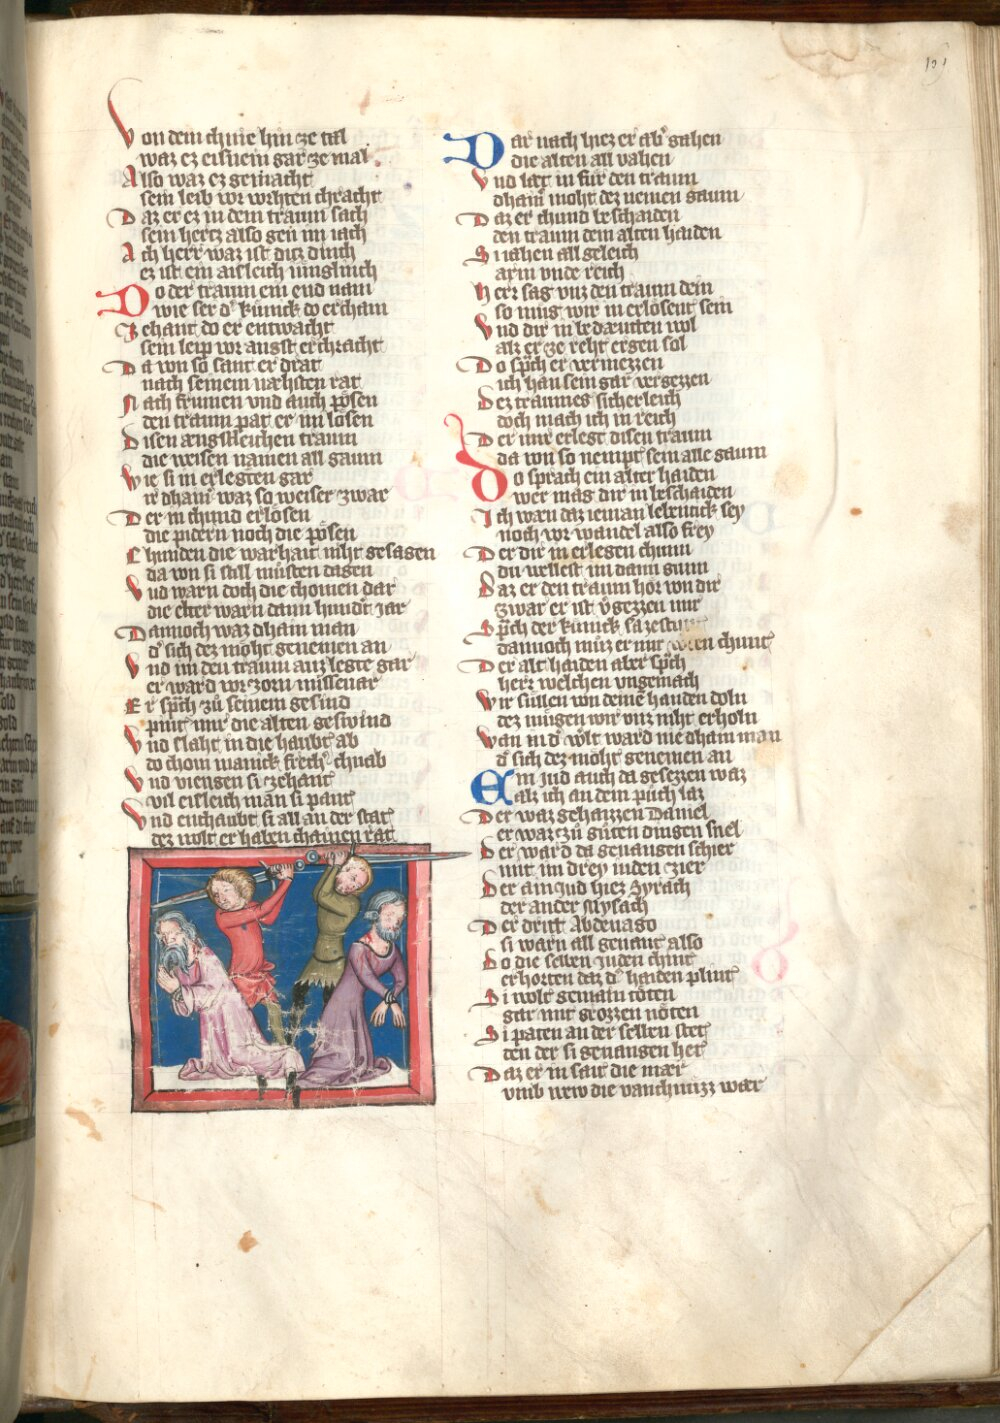 Von dem chnie hin ze tal
waz ez eisnein gar ze mal
Also waz ez gemacht
sein leib vor vorhten chracht
Daz er ez in dem traum sach
sein hertz also gen im iach
Ach herr waz ist ditz dinch
ez ist ein aisleich
Do der traum ein end nam
wie ser d' künick do ercham
Zehant do er entwacht
sein leip vor angst erchracht
Da von so sant er drat
nach seinem næhsten rat
Nach frumen vnd auch pösen
den traum pat er im lösen
Disen ængstleichen traum
die weisen namen all gaum
Wie si in erlegten gar
ir dhain' waz so weiser zwar
Der in chund erlösen
die pidern noch die pösen
Chunden die warhait niht gesagen
da von si still müsten dagen
Vnd warn doch die chomen dar
die elter warn dann hundt iar
Dannoch waz dhain man
d' sich dez moht genemen an
Vnd im den traum auz legte gar
er ward vor zorn missevar
Er sp̄ch zů seinem gesind
pint mir die alten geswind
Vnd slaht in die haubt ab
do chom manick frech' chnab
Vnd viengen si zehant
vil eisleich man si pant
Vnd enthaubt si all an der stat
dez wolt er haben chainen rat
Dar nach hiez er ab' gahen
die alten all vahen
Vnd læt in für den traum
dhain' moht dez nemen gaum
Daz er chund beschaiden
den traum dem alten haiden
Si iahen all geleich
arm vnde reich
Herr sag vnz den traum dein
so müg wir in erlösent sein
Vnd dir in bedæuten wol
alz er ze reht ergen sol
Do sp̄ch er vermezzen
ich han sein gar vergezzen
Dez traumes sicherleich
doch mach ich in reich
Der mir erlegt disen traum
da von so nempt sein alle gaum
Do sprach ein alter haiden
wer mag dir in beschaiden
Ich wæn daz ieman lebentick sey
noch vor wandel also frey
Der dir in erlegen chunn
du wellest im dann gunn
Daz er den traum hör von dir
zwar er ist v'gezzen mir
Sp̄ch der künick sazestunt
dannoch müz er mir w'den chunt
Der alt haiden aber sp̄ch
herr welchen vngemach
Wir süllen von deinē handen doln
dez mügen wir vnz niht erholn
Wan in d' w'lt ward nie dhain man
d' sich dez möht genemen an
Ein iud auch da gesezzen waz
alz ich an dem půch laz
Der waz gehaizzen Daniel
er waz zů gůten dingen snel
Der ward da geuangen schier
mit im drey iuden zier
Der ain iud hiez Syrach
der ander Mysach
Der dritt Abdenago
si warn all genant also
Do die selben iuden chint
erhorten daz d' haiden plint
Si wolt gemain töten
gar mit grozzen nöten
Si paten an der selben stet
den der si geuangen het
Daz er in sait die mær
vmb wew die vanchnüzz wær